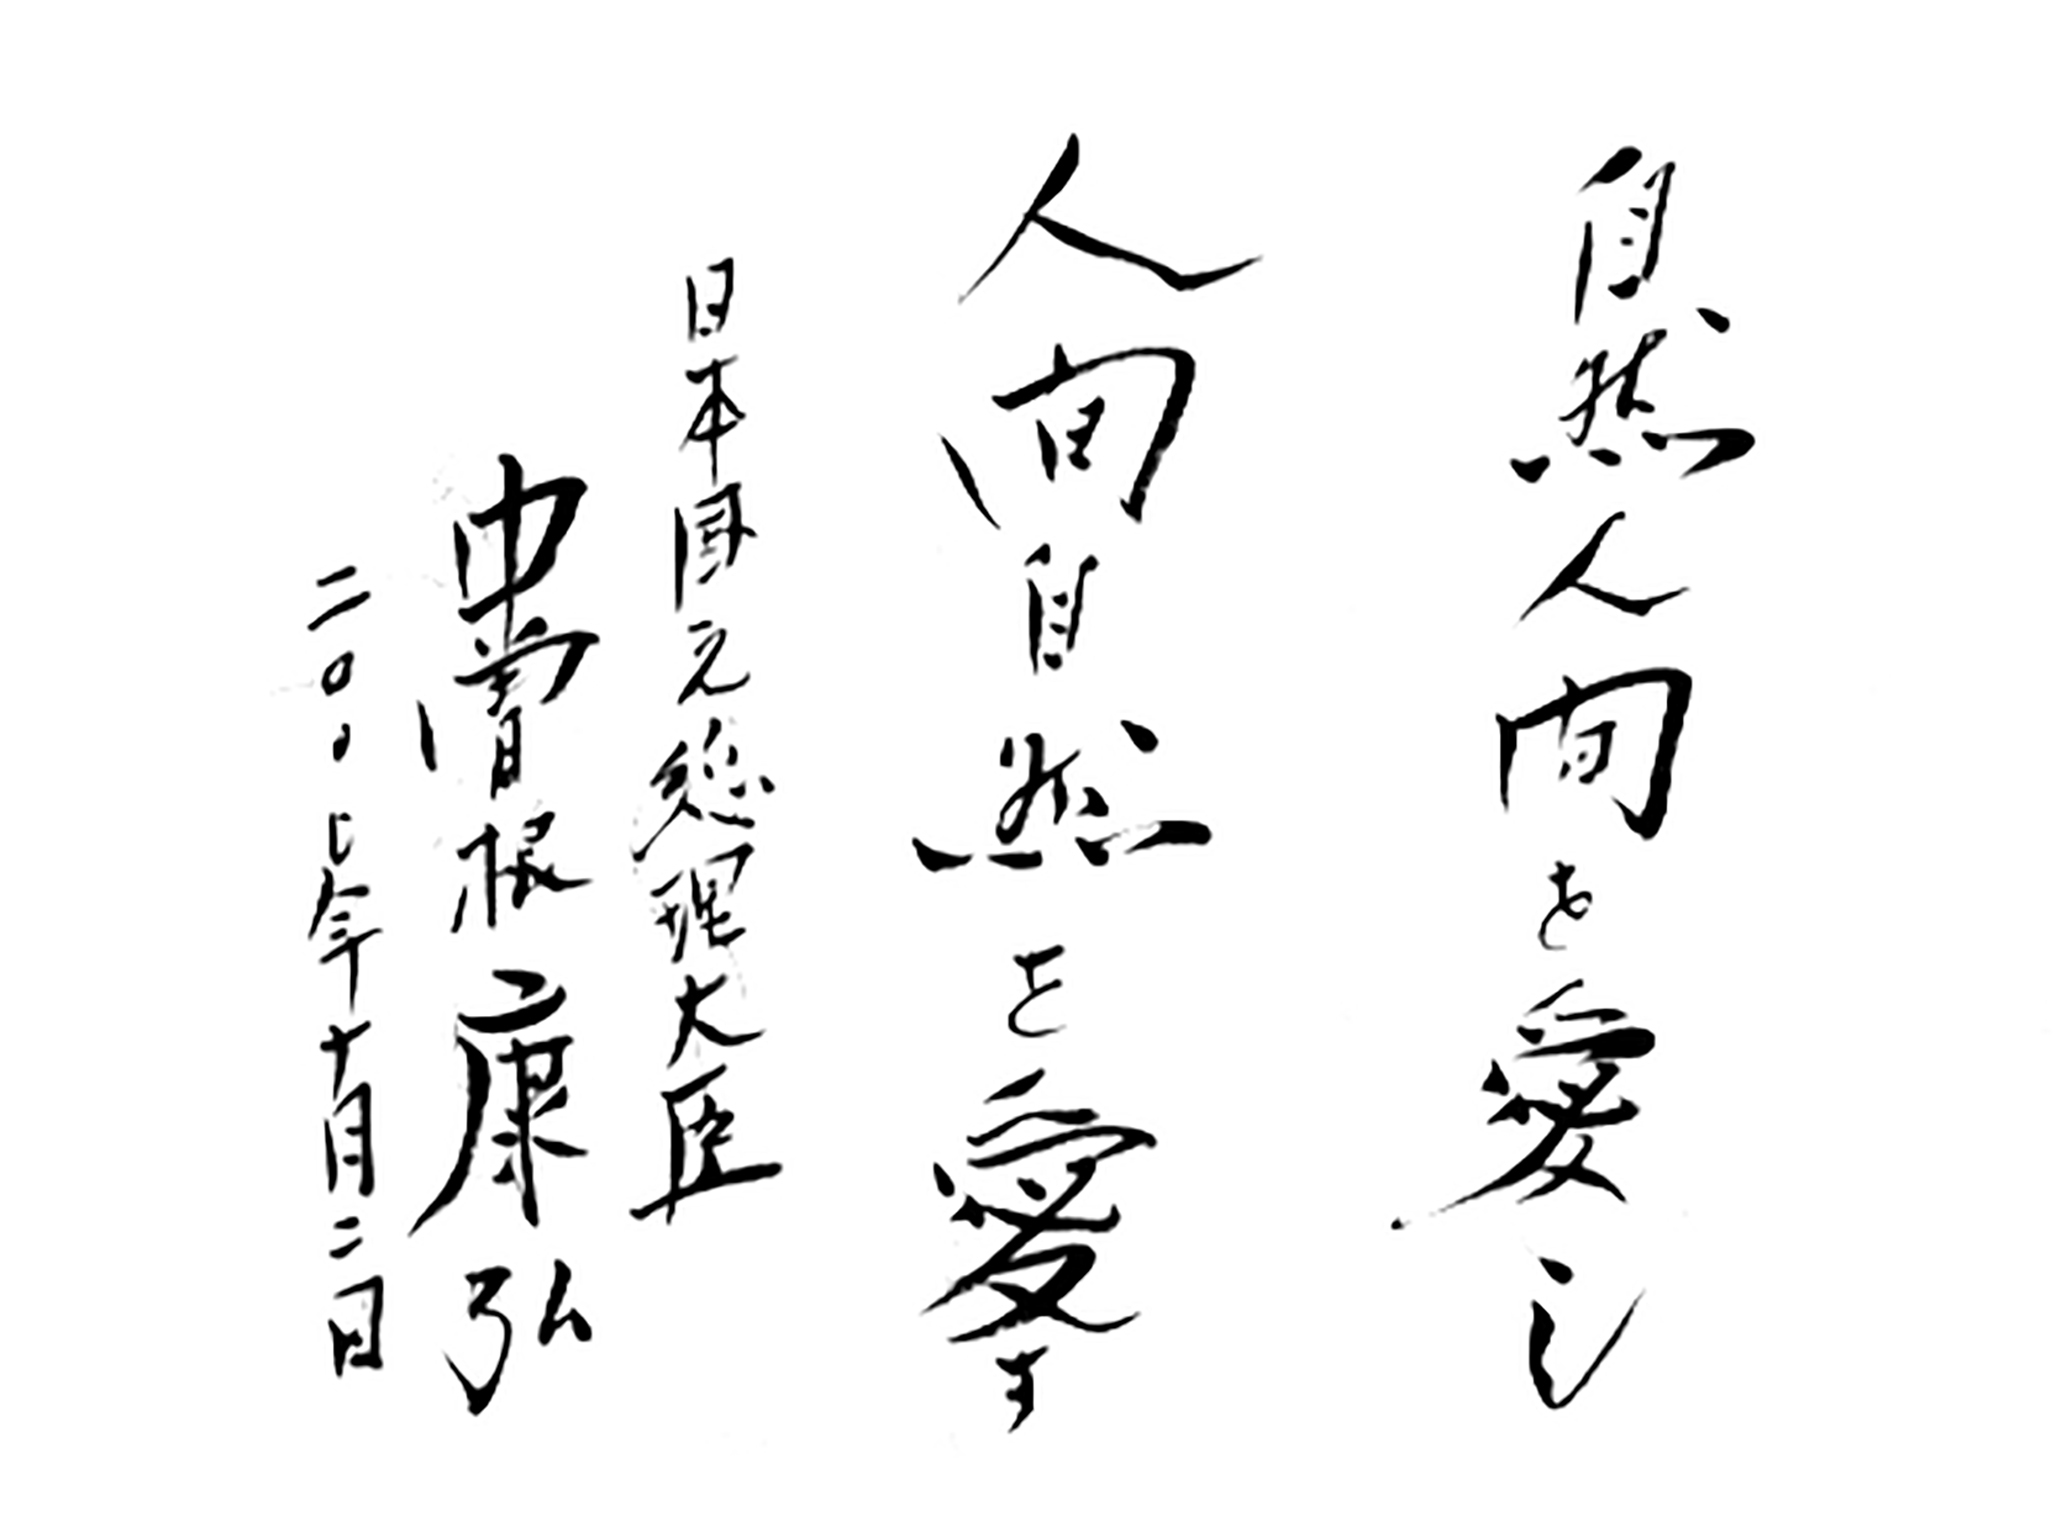 自然人間を愛し
人間自然を愛す
日本国元総理大臣
中曽根康弘
二〇〇七年十月二日